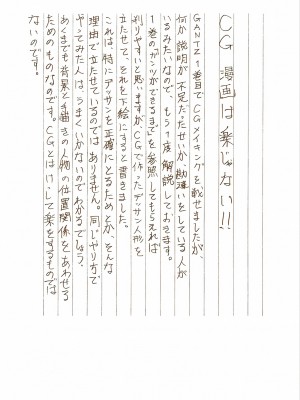 CG漫画は楽じゃない!!
GANTZ1巻目でCGメイキングを載せましたが、
何か説明が不足だったせいか、勘違いをしている人が
いるみたいなので、もう1度解説しておきます。
1巻のガンツができるまでを参照してもらえれば
判りやすいと思いますがCGで作ったデッサン人形を
立たせて、それを下絵にすると書きました。
これは、特にデッサンを正確にとるためとか、そんな
理由で立たせているのではありません。同じやり方で
やってみた人は、うまくいかないのでわかるでしょう、
あくまでも背景と手描きの人物の位置関係をあわせる
ためのものなのです。CGとはけして楽をするものでは
ないのです。